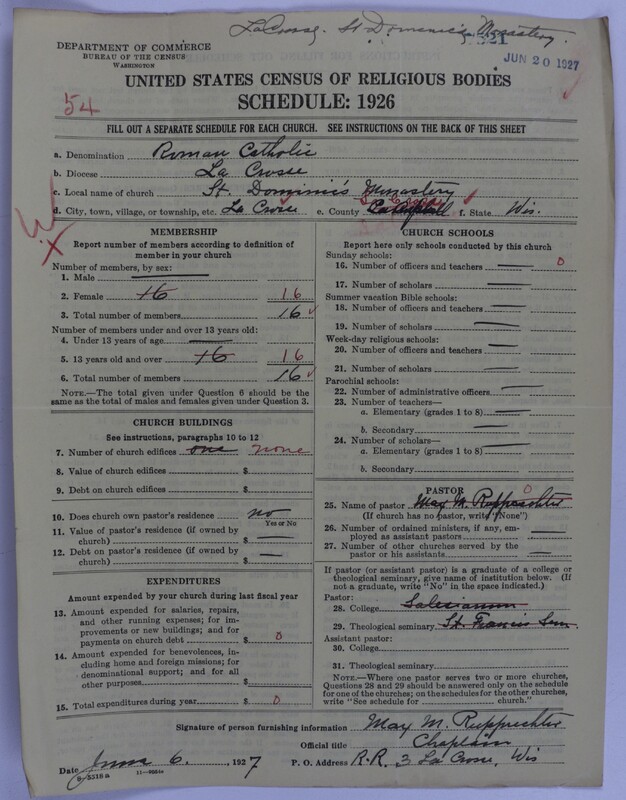 La Crosse. St Dominic's Monastery.
DEPARTMENT OF COMMERCE
BUREAU OF THE CENSUS
WASHINGTON
JUN 20 1927
UNITED STATES CENSUS OF RELIGIOUS BODIES
54
SCHEDULE: 1926
FILL OUT A SEPARATE SCHEDULE FOR EACH CHURCH. SEE INSTRUCTIONS ON THE BACK OF THIS SHEET
a. Denomination Roman Catholic
b. Diocese La Crosse
c. Local name of church St. Dominic's Monastery
d. City, town, village, or township, etc. La Crosse e. County La Crosse f. State Wis.
MEMBERSHIP
Report number of members according to definition of
member in your church
Number of members, by sex:
1. Male
2. Female 16 16
3. Total number of members 16
Number of members under and over 13 years old:
4. Under 13 years of age
5. 13 years old and over 16 16
6. Total number of members 16
NOTE.—The total given under Question 6 should be
same as the total of males and females given under Question 3.
CHURCH BUILDINGS
See instructions, paragraphs 10 to 12
7. Number of church edifices one none
8. Value of church edifices $
9. Debt on church edifices $
10. Does church own pastor's residence no
Yes or No
11. Value of pastor's residence (if owned by
church) $
12. Debt on pastor's residence (if owned by
church) $
EXPENDITURES
Amount expended by your church during last fiscal year
13. Amount expended for salaries, repairs,
and other running expenses; for im-
provements or new buildings; and for
payments on church debt $ 0
14. Amount expended for benevolences, in-
cluding home and foreign missions; for
denominational support; and for all
other purposes $
15. Total expenditures during year $ 0
CHURCH SCHOOLS
Report here only schools conducted by this church
Sunday schools:
16. Number of officers and teachers 0
17. Number of scholars
Summer vacation Bible schools:
18. Number of officers and teachers
19. Number of scholars
Week-day religious schools:
20. Number of officers and teachers
21. Number of scholars
Parochial schools:
22. Number of administrative officers
23. Number of teachers—
a. Elementary (grades 1 to 8)
b. Secondary
24. Number of scholars—
a. Elementary (grades 1 to 8)
b. Secondary
PASTOR 0
25. Name of pastor Max M. Rupprechter
(If church has no pastor, write "None")
26. Number of ordained ministers, if any, em-
ployed as assistant pastors
27. Number of other churches served by the
pastor or his assistants
If pastor (or assistant pastor) is a graduate of a college or
theological seminary, give name of institution below. (If
not a graduate, write "No" in the space indicated.)
Pastor:
28. College Salesianum
29. Theological seminary St. Francis Sem
Assistant pastor:
30. College
31. Theological seminary
NOTE.—Where one pastor serves two or more churches,
Questions 28 and 29 should be answered only on the schedule
for one of the churches; on the schedules for the other churches,
write "See schedule for church."
Signature of person furnishing information Max M. Rupprechter
Official title Chaplain
Date June 6, 1927 P. O. Address R.R. 3 La Crosse, Wis
8-5318a